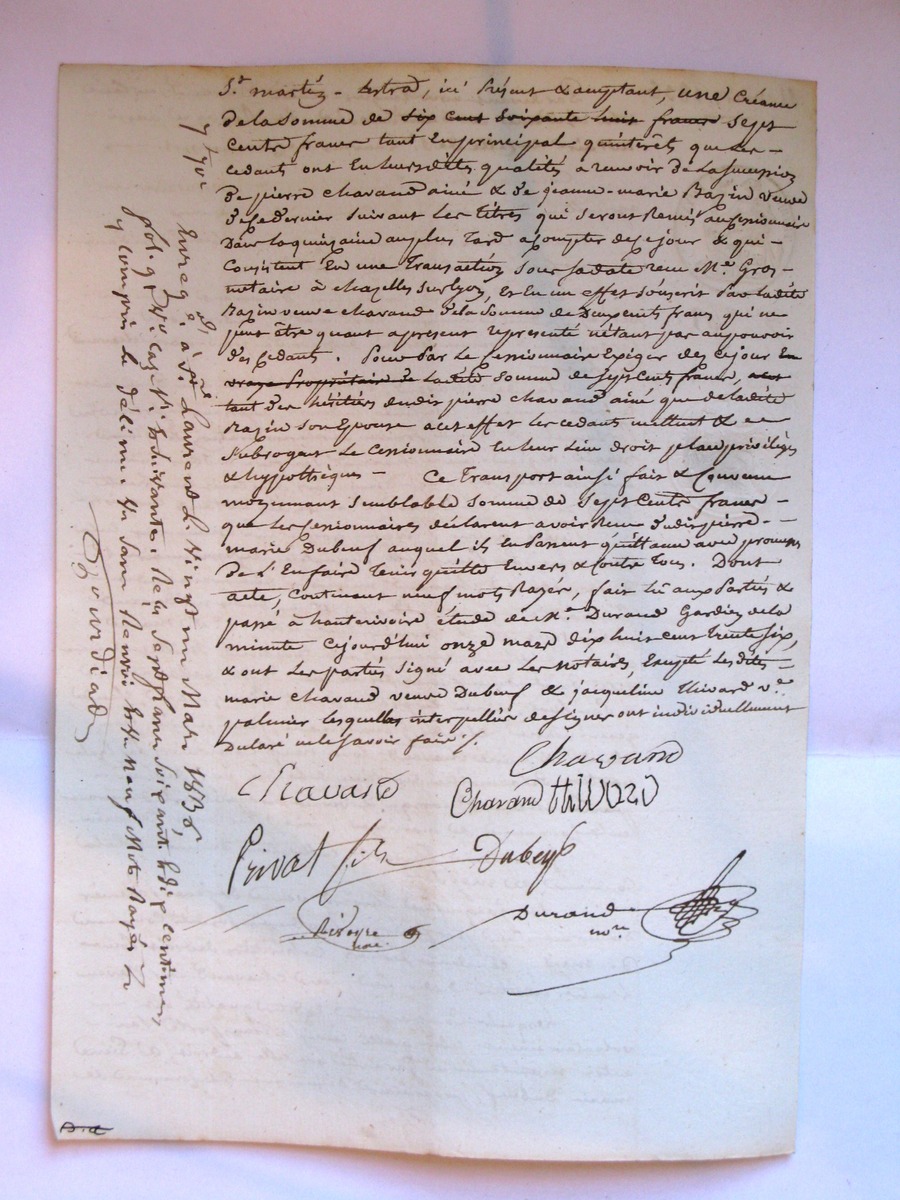 St. martin - lestra, ici présent & acceptant, une Créance
de la somme de six cent soixante huit francs sept
cents francs tant en principal qu'intérêts que les -
cedants ont en leurs dites qualités a recevoir de la succession
de pierre chavand ainé & de jeanne-marie Bazin veuve
de ce dernier suivant les titres qui seront Remis au cessionnaire
dans la quinzaine au plus tard a compter de ce jour & qui -
consistent En une Transaction sous sa date reçu Me. Gros -
notaire à chazelles sur lyon, et En un effet souscrit par ladite
Bazin veuve chavand de la Somme de Deux cents francs qui ne
peut être quant a present representé n'étant pas au pouvoir
des Cedants. Pour par le Cessionnaire Exiger dès ce jour En
vraye Propriétaire de Ladite somme de sept cents francs,
tant des héritiers dudit pierre chavand ainé que de ladite
Bazin son Epouse a cet effet les cedants mettent & -
subrogent Le Cessionnaire En leur Lieu droit place privilèges
& hypothèques - Ce Transport ainsi fait & Convenu
moyennant Semblable Somme de Sept Cents francs -
que les Cessionnaires déclarent avoir Reçu dudit pierre -
marie Dubeuf auquel ils En Passent quittance avec promesse
de L'En faire Tenir quitte Envers & Contre Tous. Dont
acte, Contenant neuf mots Rayés, fait lû aux Parties &
passé à hauterivoire étude de Me. Durand Gardien de la
minute Cejourd'hui onze mars dix huit cent trente six,
& ont Les parties Signé avec Les Notaires, Excepté Lesdites -
marie Chavand veuve Dubeuf & jacqueline Thivard ve.
palmier lesquelles interpellées de signer ont individuellement
Déclaré ne le savoir faire /.
Chavand
Chavand
Chavand
Privat fils
Dubeuf
Durand
nore
Enregé. à St. Laurent L. Vingt un Mars 1836
fol. 9, Vo. Case 1re. & suivantes. Reçu Sept francs Soixante & dix centimes
y compris le décime et sans Renvoi
Neuf Mots Rayés
Gourdiad